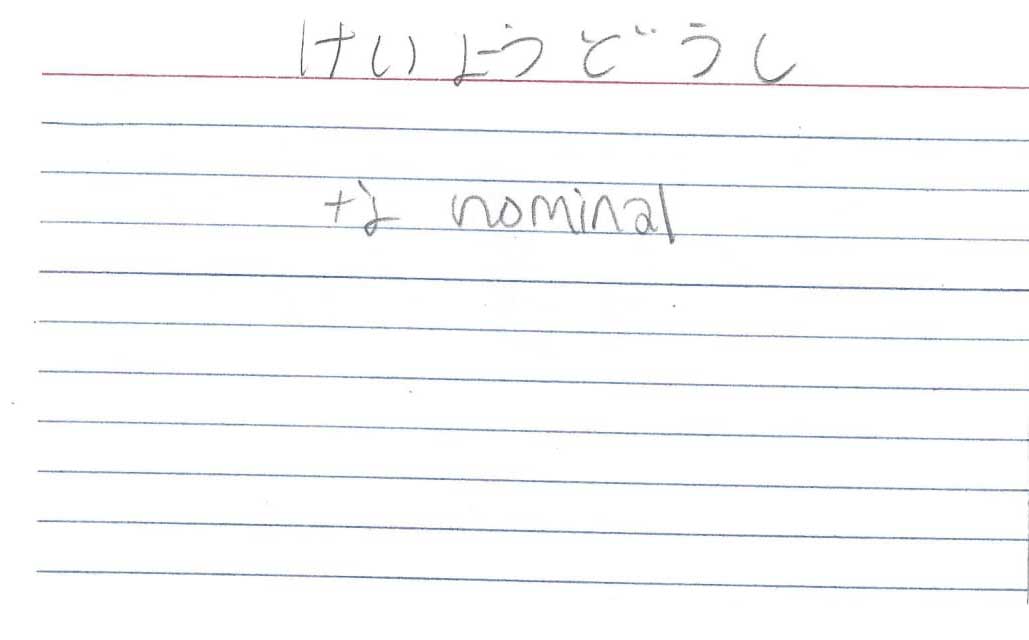 けいようどうし
な nominal